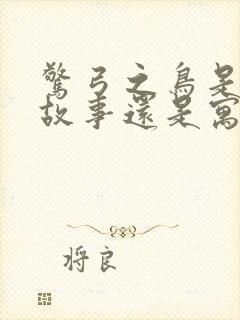 驚弓之鳥是
故事還是寓
將良